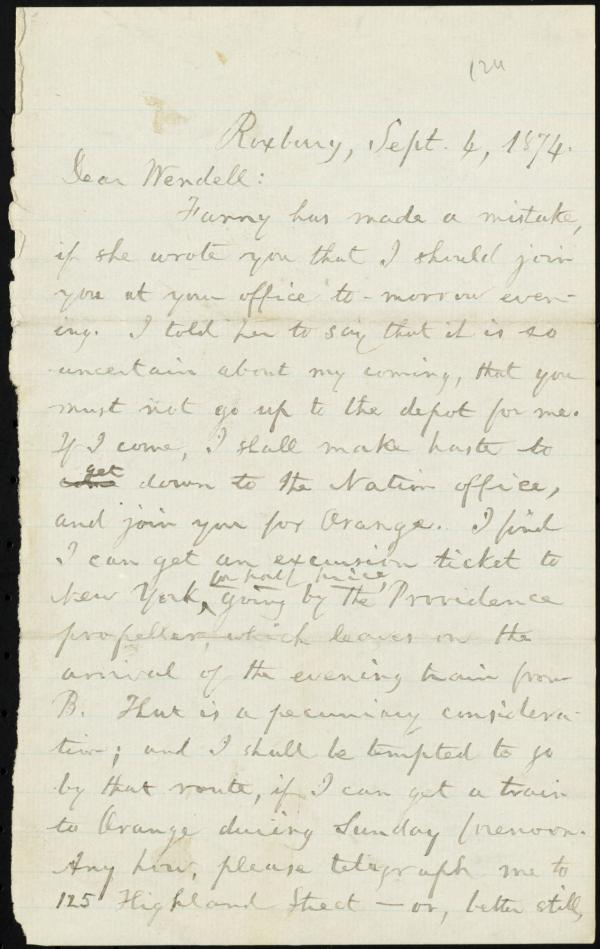 124
Roxbury, Sept. 4, 1874.
Dear Wendell:
Fanny has made a mistake,
if she wrote you that I should join
you at your office to-morrow even-
ing. I told her to say that it is so
uncertain about my coming, that you
must not go up to the depot for me.
If I come, I shall make haste to
come get down to the Nation office,
and join you for Orange. I find
I can get an excursion ticket to
New York, for half price, going by the Providence
propeller, which leaves on the
arrival of the evening train from
B. That is a pecuniary considera-
tion; and I shall be tempted to go
by that route, if I can get a train
to Orange during Sunday forenoon.
Any how, please telegraph me to
125 Highland Street — or, better still,